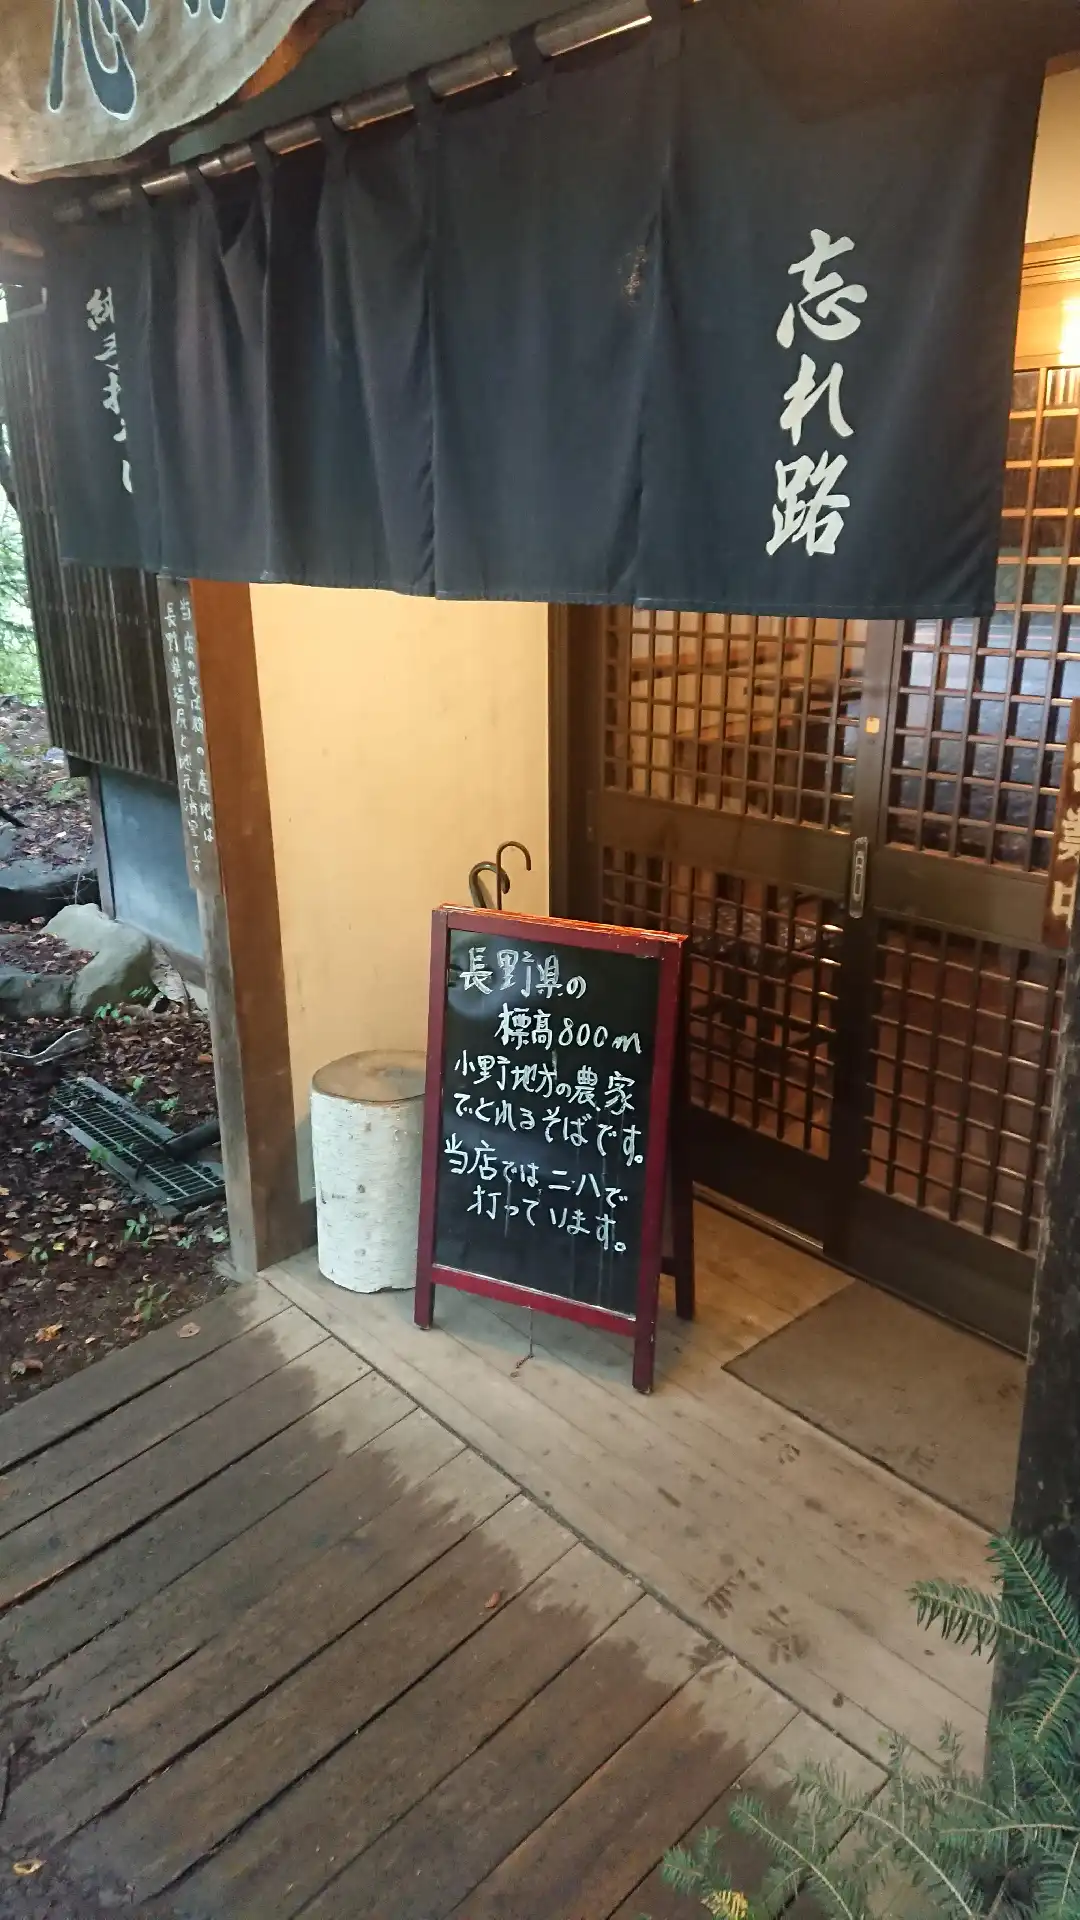 忘れ路
当店のそば粉の産地は
長野県塩尻と地元清里です
長野県の
標高800m
小野地方の農家
でとれるそばです。
当店では二・八で
打っています。